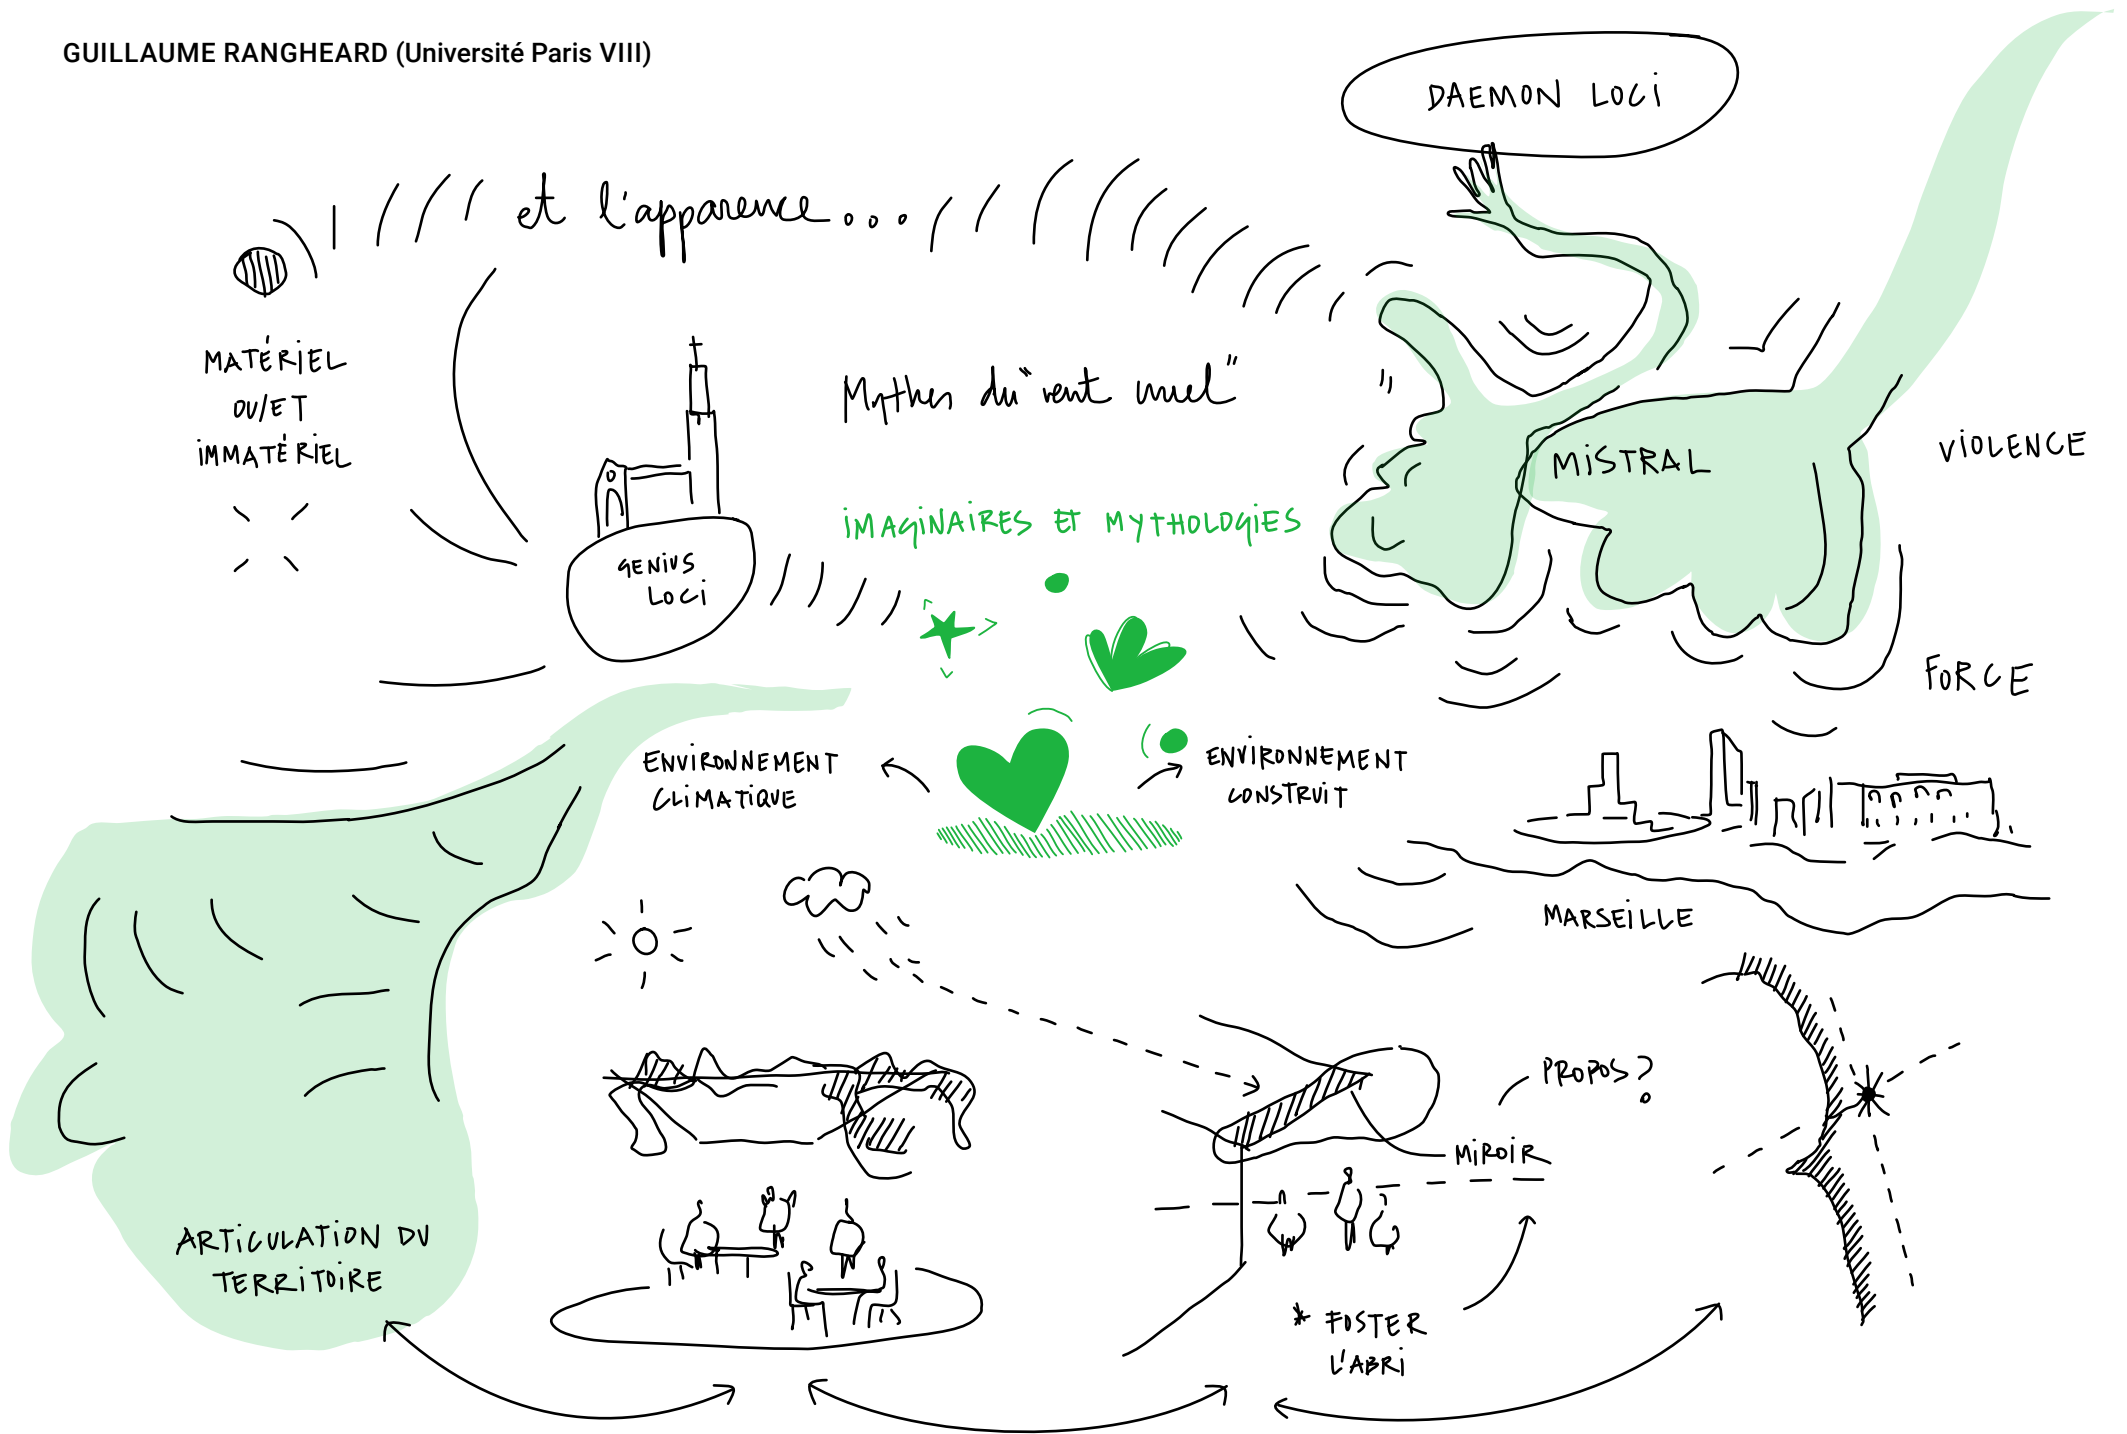 GUILLAUME RANGHEARD (Université Paris VIII)
DAEMON LOCI
et l'apparence...
MATÉRIEL
OU/ET
IMMATÉRIEL
Mythes du "vent cruel"
MISTRAL
VIOLENCE
IMAGINAIRES ET MYTHOLOGIES
GENIUS
LOCI
FORCE
ENVIRONNEMENT
CLIMATIQUE
ENVIRONNEMENT
CONSTRUIT
MARSEILLE
PROPOS?
MIROIR
ARTICULATION DU
TERRITOIRE
* FOSTER
L'ABRI